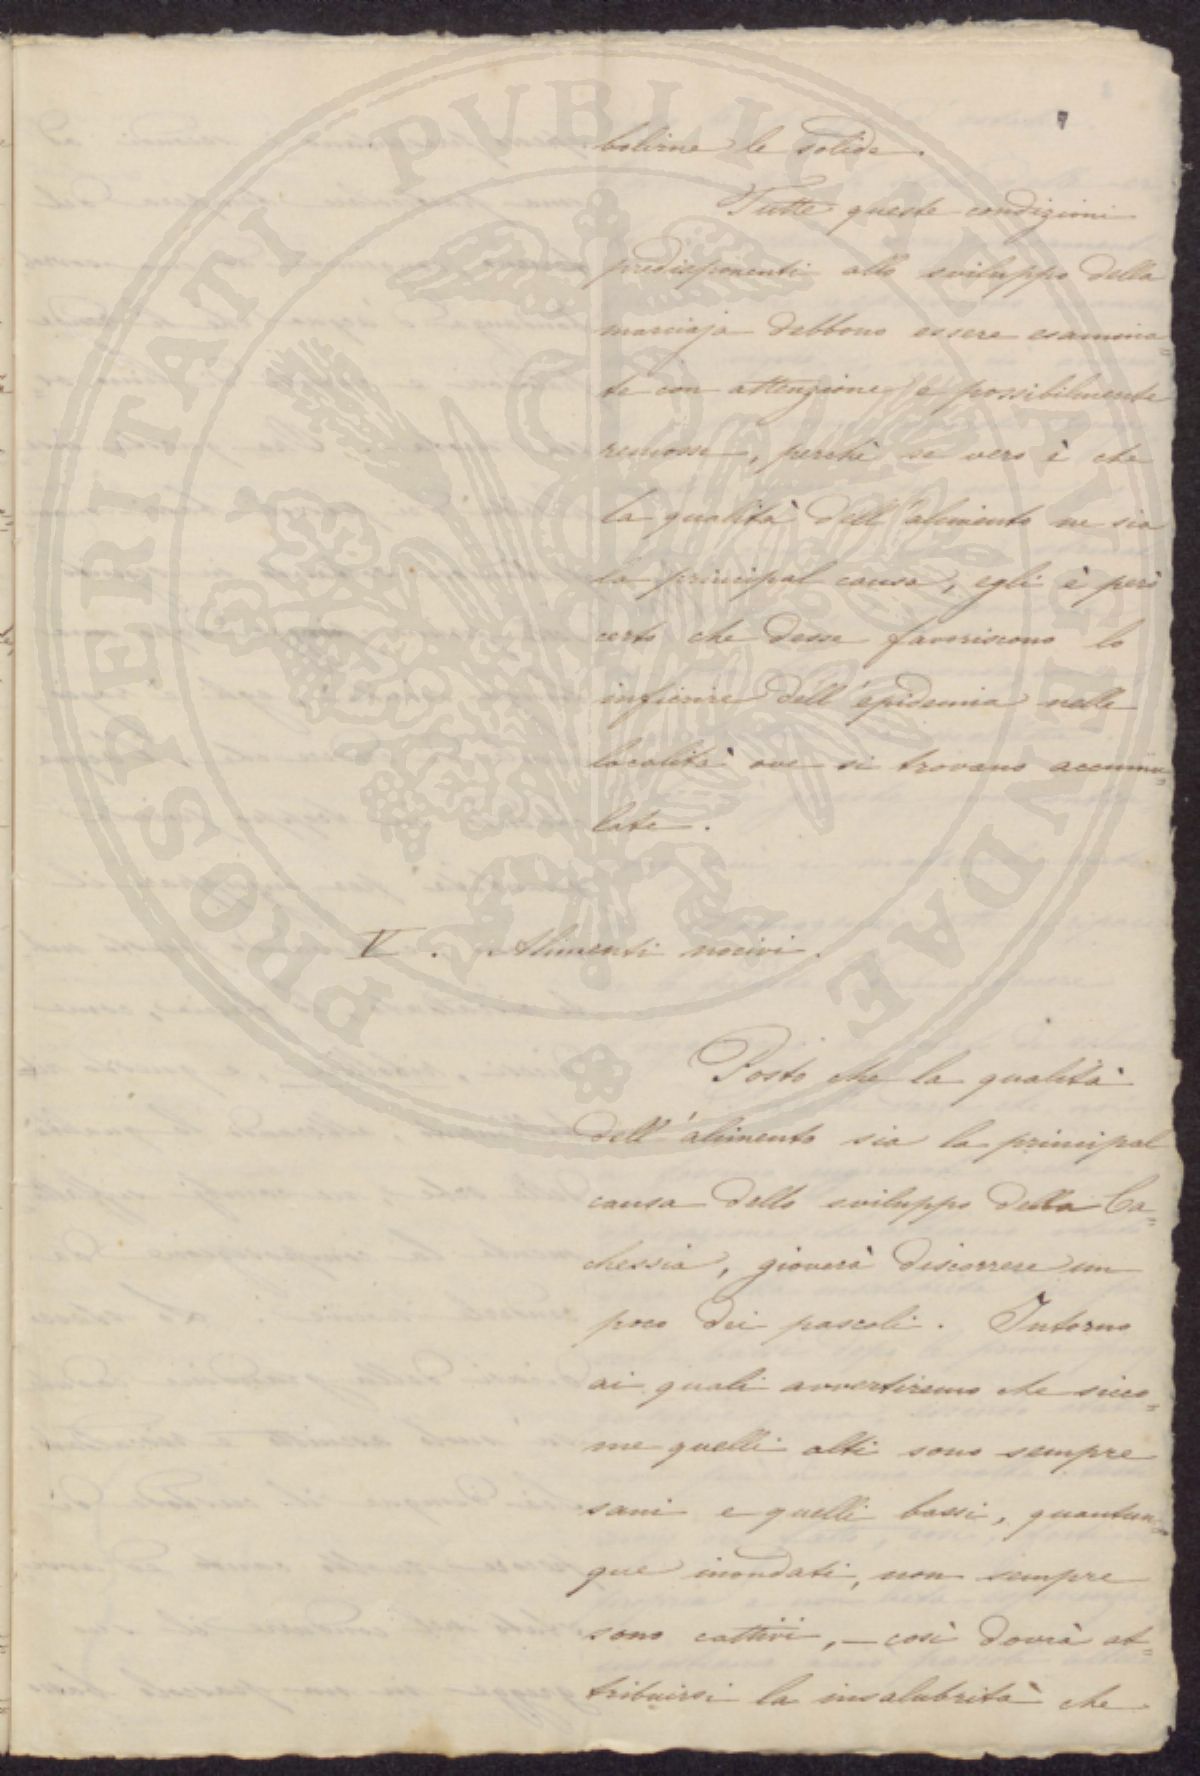 7
bolirne le solide.
Tutte queste condizioni
predisponenti allo sviluppo della
marciaja debbono essere esamina=
te con attenzione e possibilmente
remosse, perchè se vero è che
la qualità dell'alimento ne sia
la principal causa, egli è però
certo che desse favoriscono lo
infierire dell'epidemia nelle
località ove si trovano accumu=
late.
V. Alimenti nocivi.
Posto che la qualità
dell'alimento sia la principal
causa dello sviluppo della Ca=
chessia, gioverà discorrere un
poco dei pascoli. Intorno
ai quali avvertiremo che sicco=
me quelli alti sono sempre
sani e quelli bassi, quantun=
que inondati, non sempre
sono cattivi, — così dovrà at=
tribuirsi la insalubrità che
PROSPERITATI PVBLICAE AVGENDAE